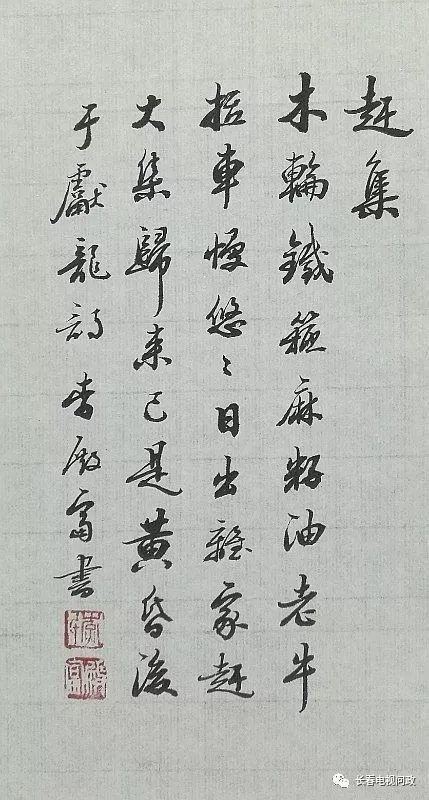 赶集
木輪鐵箍麻籽油老牛
拉車慢悠〻日出離家赶
大集歸来已是黄昏後
于獻龍詩李殿富書
长春电视问政